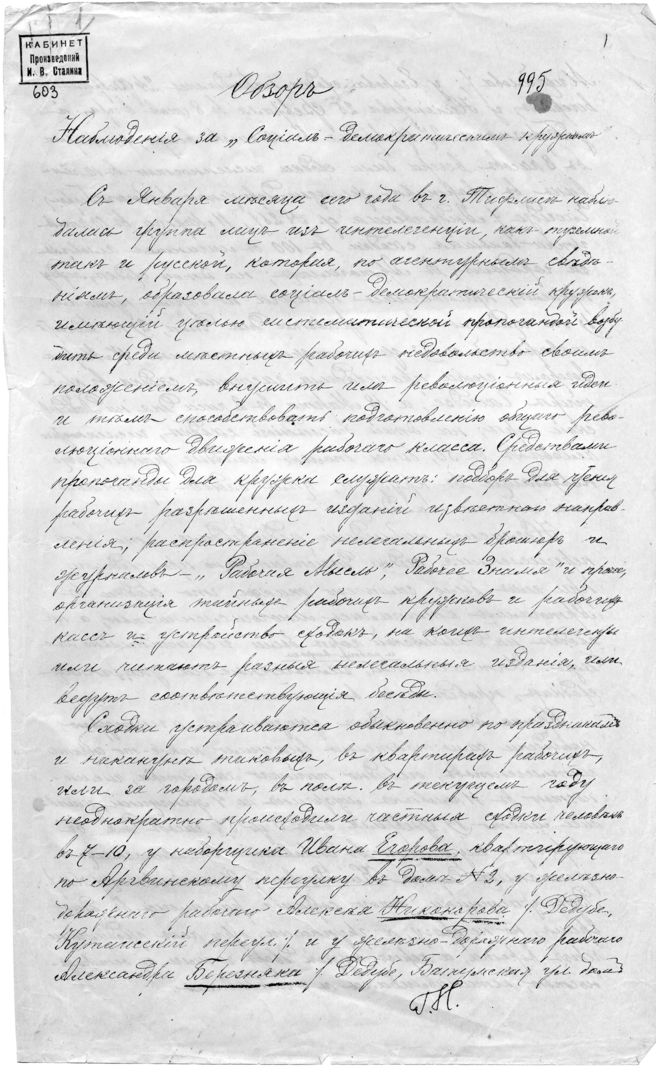 КАБИНЕТ
Произведений
И. В. Сталина
603
1
995
Обзоръ
Наблюденія за „Соціалъ-демократическимъ кружкомъ
Съ Января мѣсяца сего года въ г. Тифлисѣ наблю-
далась группа лицъ изъ интелегенціи, какъ туземной
такъ и русской, которая, по агентурнымъ свѣдѣ-
ніямъ, образовала соціалъ-демократическій кружокъ,
имѣющій цѣлью систематической пропогандой возбу
дить среди мѣстныхъ рабочихъ недовольство своимъ
положеніемъ, внушить имъ революціонныя идеи
и тѣмъ способствовать подготовленію общаго рево-
люціоннаго движенія рабочаго класса. Средствами
пропоганды для кружка служатъ: подборъ для чтенія
рабочихъ разрѣшенныхъ изданій извѣстнаго направ-
ленія; распространеніе нелегальныхъ брошюръ и
журналовъ – „Рабочая Мысль", „Рабочее Знамя" и проч.,
организація тайныхъ рабочихъ кружковъ и рабочихъ
кассъ и устройство сходокъ, на коихъ интелегенты
или читаютъ разныя нелегальныя изданія, или
ведутъ соотвѣтствующія бесѣды.
Сходки устраиваются обыкновенно по праздникамъ
и наканунѣ таковыхъ, въ квартирахъ рабочихъ,
или за городомъ, въ полѣ. въ текущемъ году
неоднократно происходили частныя сходки человѣкъ
въ 7–10, у наборщика Ивана Егорова, квартирующаго
по переулку въ домѣ №3, у желѣзно-
дорожнаго рабочаго Алексѣя Никонорова /Дедубе,
Кутаисскій переул./ и у желѣзно-дорожнаго рабочаго
Александра Березняка /Дедубе, ул. домъ